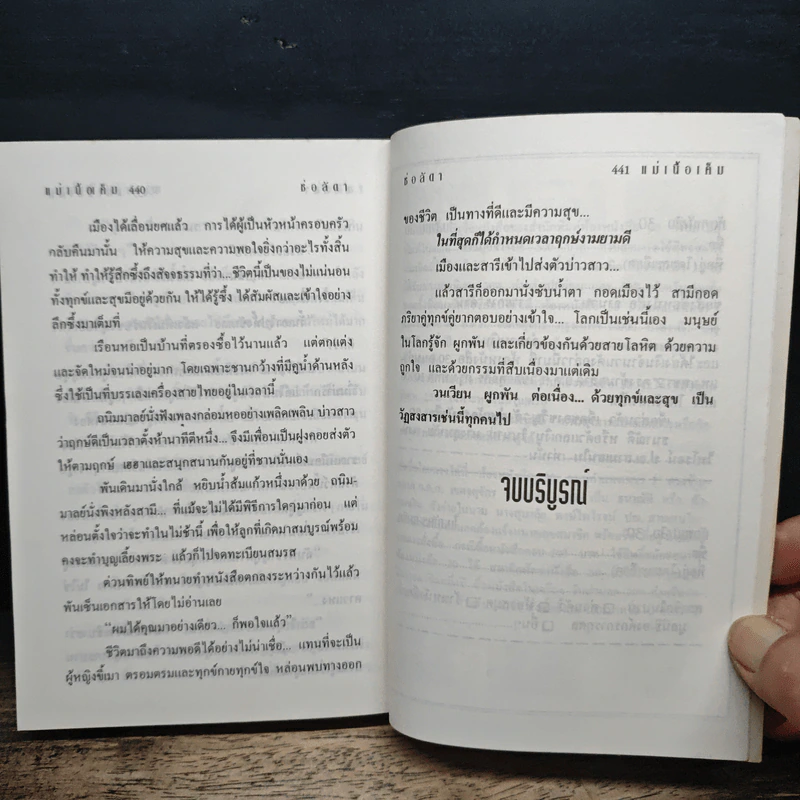 แม่เนื้อเค็ม 440
ช่อลัดา
เมืองได้เลื่อนยศแล้ว การได้ผู้เป็นหัวหน้าครอบครัว
กลับคืนมานั้น ให้ความสุขและความพอใจยิ่งกว่าอะไรทั้งสิ้น
ทำให้ ทำให้รู้สึกซึ้งถึงสัจธรรมที่ว่า...ชีวิตนี้เป็นของไม่แน่นอน
ทั้งทุกข์และสุขมีอยู่ด้วยกัน ให้ได้รู้ซึ้ง ได้สัมผัสและเข้าใจอย่าง
ลึกซึ้งมาเต็มที่
เรือนหอเป็นบ้านที่ตรองซื้อไว้นานแล้ว แต่ตกแต่ง
และจัดใหม่จนน่าอยู่มาก โดยเฉพาะชานกว้างที่มีคูน้ำด้านหลัง
ซึ่งใช้เป็นที่บรรเลงเครื่องสายไทยอยู่ในเวลานี้
ถนิมมาลย์นั่งฟังเพลงกล่อมหออย่างเพลิดเพลิน บ่าวสาว
ว่าฤกษ์ดีเป็นเวลาตั้งห้านาทีตีหนึ่ง... จึงมีเพื่อนเป็นฝูงคอยส่งตัว
ให้ตามฤกษ์ เฮฮาและสนุกสนานกันอยู่ที่ชานนั่นเอง
พันเดินมานั่งใกล้ หยิบน้ำส้มแก้วหนึ่งมาด้วย ถนิม-
มาลย์นั่งพิงหลังสามี... ที่แม้จะไม่ได้มีพิธีการใดๆมาก่อน แต่
หล่อนตั้งใจว่าจะทำในไม่ช้านี้ เพื่อให้ลูกที่เกิดมาสมบูรณ์พร้อม
คงจะทำบุญเลี้ยงพระ แล้วก็ไปจดทะเบียนสมรส
ต่วนทิพย์ให้ทนายทำหนังสือตกลงระหว่างกันไว้แล้ว
พันเซ็นเอกสารให้โดยไม่อ่านเลย
“ผมได้คุณมาอย่างเดียว... ก็พอใจแล้ว”
ชีวิตมาถึงความพอดีได้อย่างไม่น่าเชื่อ... แทนที่จะเป็น
ผู้หญิงขี้เมา ตรอมตรมและทุกข์กายทุกข์ใจ หล่อนพบทางออก
ช่อลัดา
441 แม่เนื้อเค็ม
ของชีวิต เป็นทางที่ดีและมีความสุข...
ในที่สุดก็ได้กำหนดเวลาฤกษ์งามยามดี
เมืองและสารีเข้าไปส่งตัวบ่าวสาว...
แล้วสารีก็ออกมานั่งซับน้ำตา กอดเมืองไว้ สามีกอด
ภริยาคู่ทุกข์คู่ยากตอบอย่างเข้าใจ... โลกเป็นเช่นนี้เอง มนุษย์
ในโลกรู้จัก ผูกพัน และเกี่ยวข้องกันด้วยสายโลหิต ด้วยความ
ถูกใจ และด้วยกรรมที่สืบเนื่องมาแต่เดิม
วนเวียน ผูกพัน ต่อเนื่อง... ด้วยทุกข์และสุข เป็น
วัฏสงสารเช่นนี้ทุกคนไป
จบบริบูรณ์